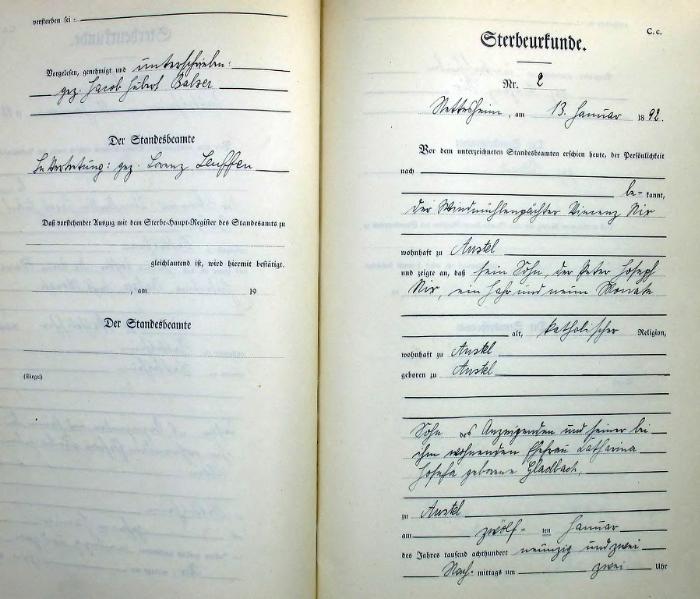 verstorben sei :
Vorgelesen, genehmigt und unterschrieben:
gez. Jacob Hubert Balzer
Der Standesbeamte
In Vertretung: gez. Lorenz
Daß vorstehender Auszug mit dem Sterbe-Haupt-Register des Standesamts zu
gleichlautend ist, wird hiermit bestätigt.
, am 19
Der Standesbeamte
(Siegel)
C. c.
Sterbeurkunde.
Nr. 2
Nettesheim, am 13. Januar 1892.
Vor dem unterzeichneten Standesbeamten erschien heute, der Persönlichkeit
nach
be- kannt,
der Windmühlenpächter Vincenz Nix
wohnhaft zu Anstel
und zeigte an, daß sein Sohn, der Peter Joseph
Nix, ein Jahr und neun Monate
alt, katholischer Religion,
wohnhaft zu Anstel
geboren zu Anstel
Sohn des Anzeigenden und seiner bei
ihm wohnenden Ehefrau Catharina
Josefa geborene Gladbach,
zu Anstel
am zwölf- ten Januar
des Jahres tausend achthundert neunzig und zwei
Nach- mittags um zwei Uhr